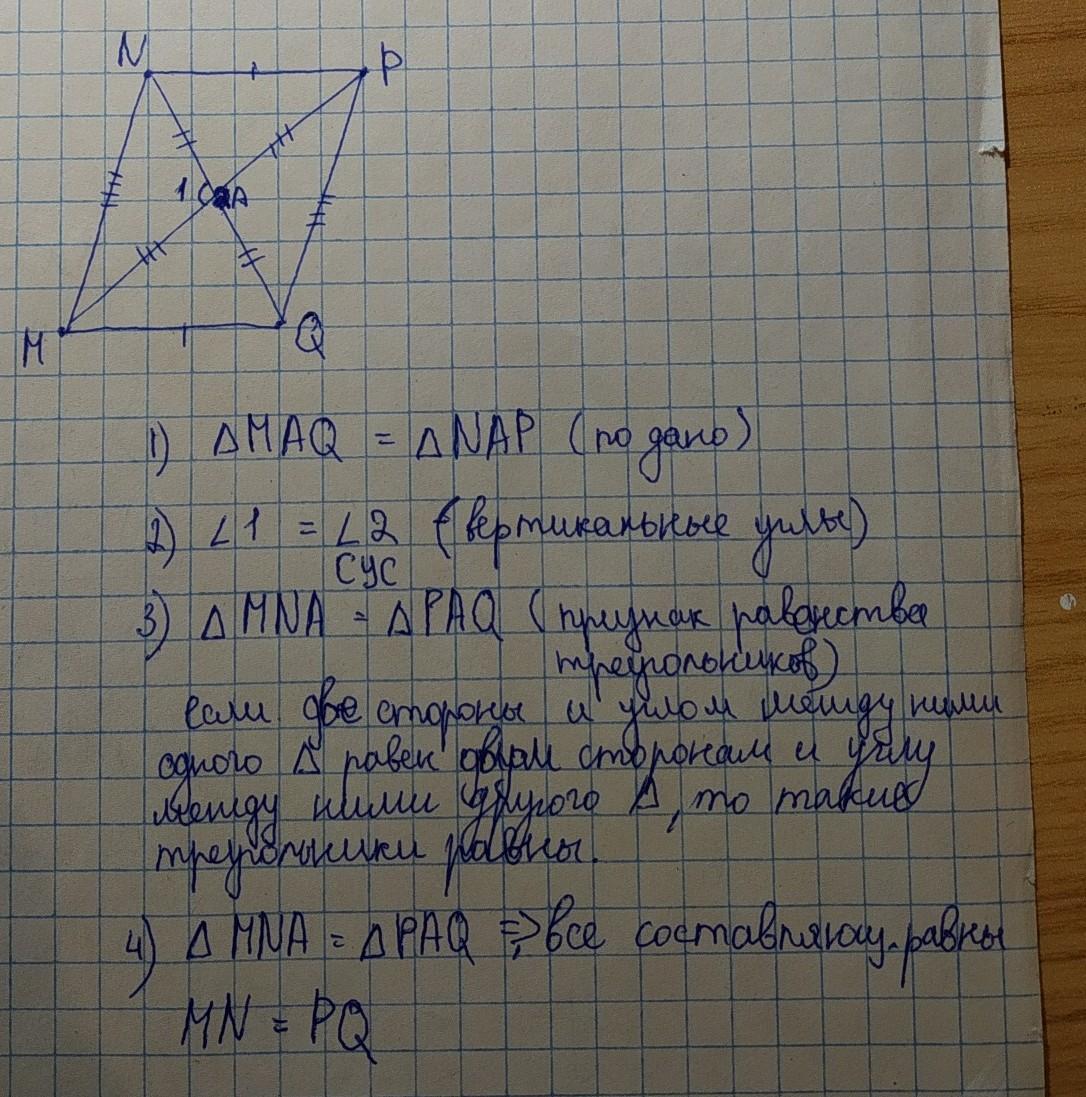 N P
1 2 A
M Q
1) Δ MAQ = Δ NAP (по дано)
2) ∠1 = ∠2 (вертикальные углы)
СУС
3) Δ MNA = Δ PAQ (признак равенства
треугольников)
если две стороны и углом между ними
одного Δ равен двум сторонам и углу
между ними другого Δ, то такие
треугольники равны.
4) Δ MNA = Δ PAQ => все составляющ. равны
MN = PQ